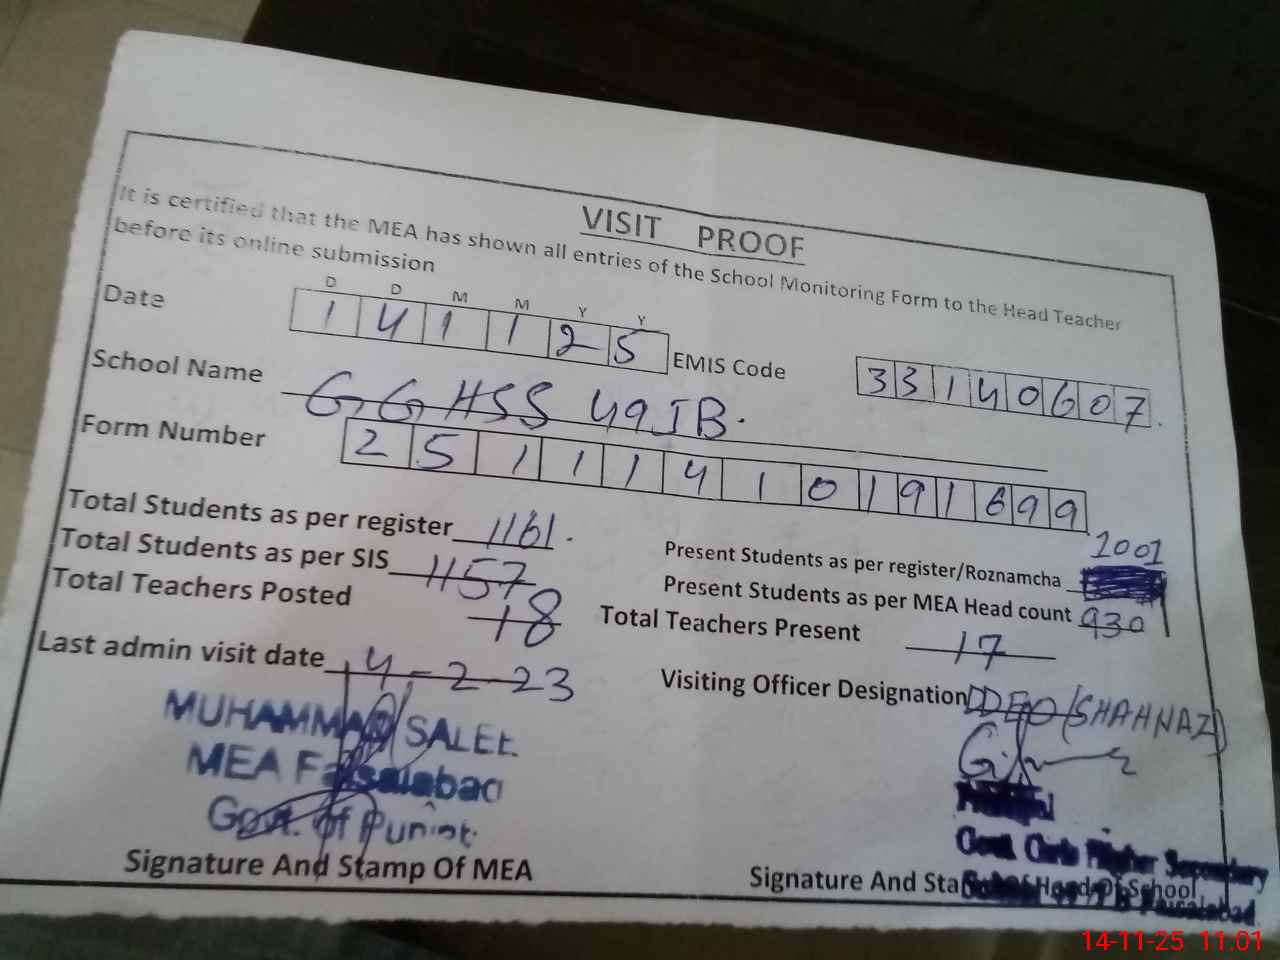 VISIT PROOF
It is certified that the MEA has shown all entries of the School Monitoring Form to the Head Teacher
before its online submission
D D M M Y Y
Date 1 4 1 1 2 5 EMIS Code 3 3 1 4 0 6 0 7
School Name GGHSS 49JB.
Form Number 2 5 1 1 1 4 1 0 1 9 1 6 9 9
Total Students as per register 1161. Present Students as per register/Roznamcha 1001
Total Students as per SIS 1157 Present Students as per MEA Head count 930
Total Teachers Posted 18 Total Teachers Present 17
Last admin visit date 4-2-23 Visiting Officer Designation DDEO (SHAHNAZ)
MUHAMMAD SALEE
MEA Faisalabad
Govt. of Punjab
Principal
Govt. Girls Higher Secondary
Signature And Stamp Of MEA Signature And Stamp Of Head Of School
Faisalabad
14-11-25 11.01